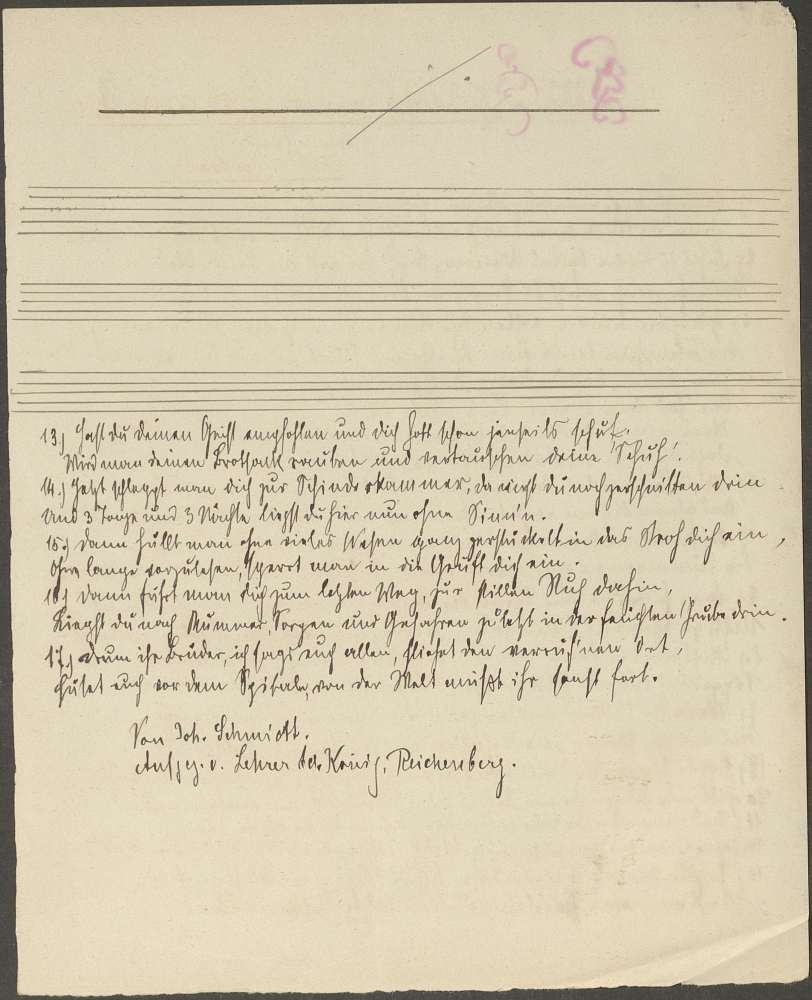 13.) Hast du deinen Geist empfohlen und dich Gott schon jenseits schuf.
Wird man deinen Brotsack rauben und vertauschen deine Schuh'.
14.) Jetzt schleppt man dich zur Schinderkammer, da liegst du noch zerschnitten drin
Und 3 Tage und 3 Nächte liegst du hier nun ohne Sinn'n.
15.) Dann hüllt man ohne vieles Wesen ganz zerstückelt in das Stroh dich ein,
Ohne lange vorzulesen, sperrt man in die Gruft dich ein.
16.) Dann führt man dich zum letzten Weg, zur stillen Ruh dahin,
Liegst du nach Kummer, Sorgen und Gefahren zuletzt in der feuchten Grube drin.
17.) Drum ihr Brüder, ich sags euch allen, fliehet den verruf'nen Ort,
Hütet euch vor dem Spitale, von der Welt müßt ihr sonst fort.
Von Joh. Schmidt.
Aufgez. v. Lehrer Ad. König, Reichenberg.